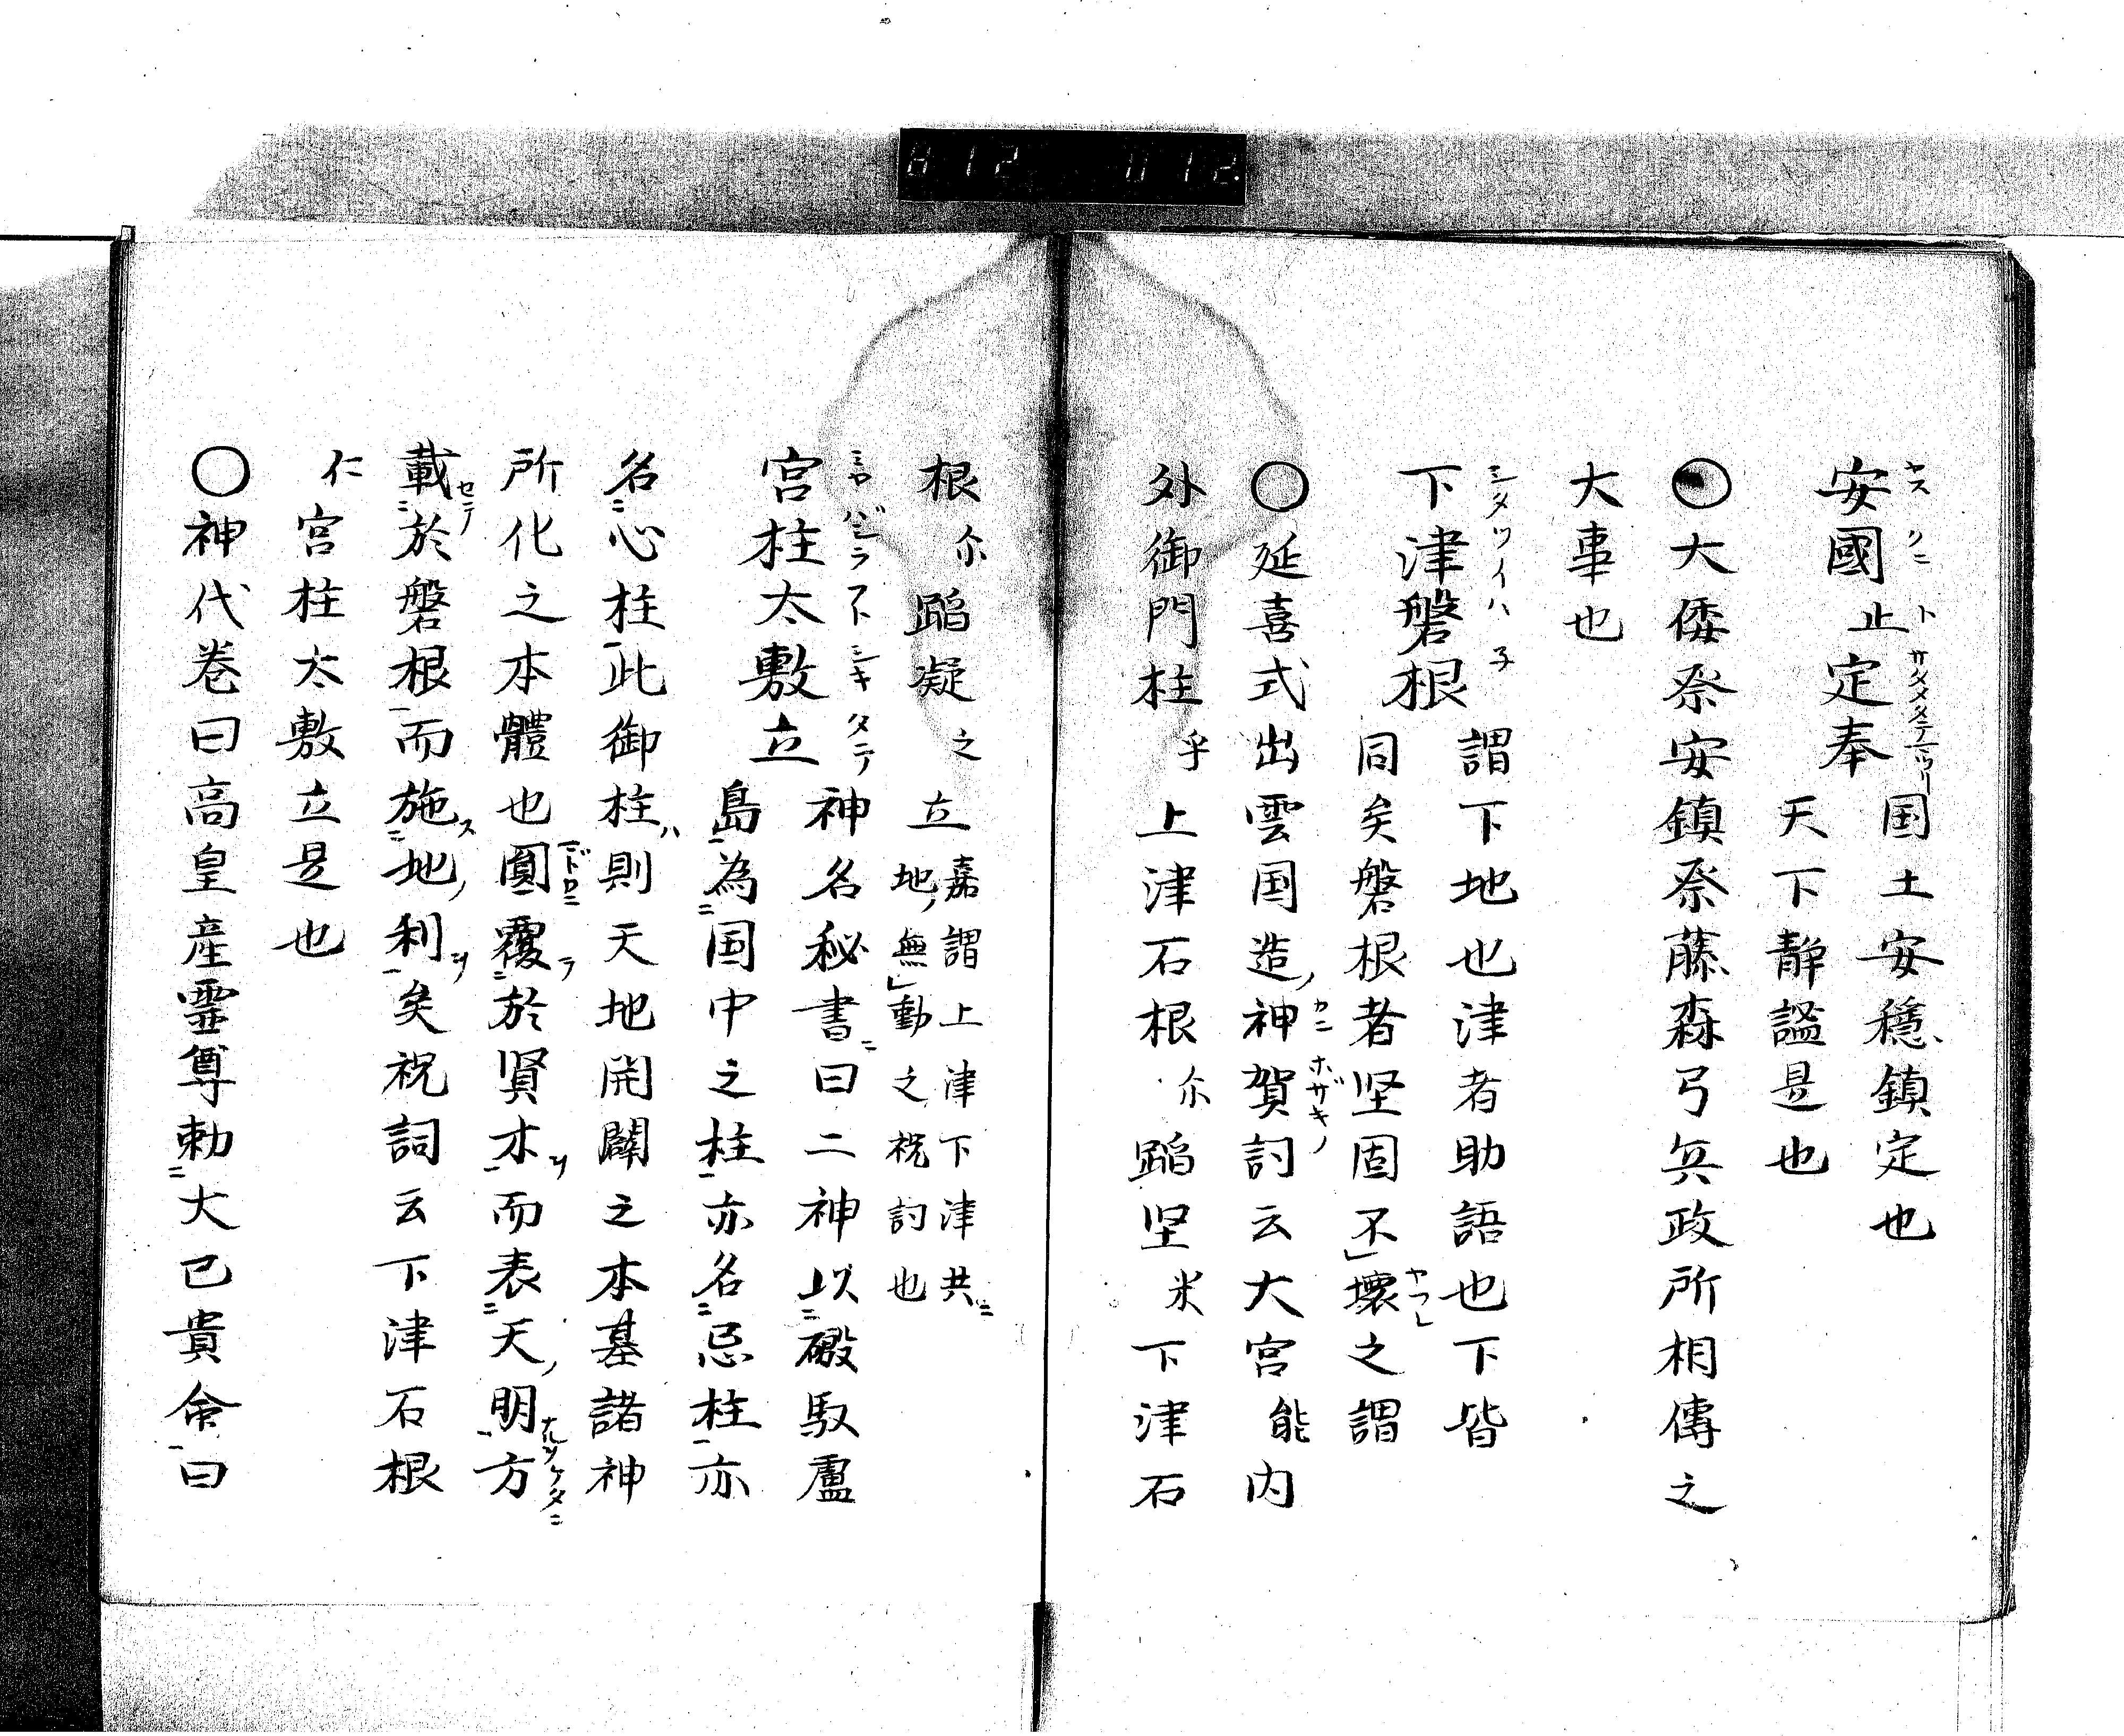 012 012
安國止定奉 国土安穏鎮定也
天下静謐是也
○大倭祭安鎮祭藤森弓兵政所相傳之
大事也
下津磐根 謂下地也津者助語也下皆
同矣磐根者坚固不壞之謂
○延喜式出雲国造神賀詞云大宮能内
外御門柱乎上津石根尓蹈坚米下津石
根尓蹈凝之立 嘉謂上津下津共
地無動之祝詞也
宮柱太敷立 神名秘書曰二神以磤馭盧
島為国中之柱亦名忌柱亦
名心柱此御柱則天地開闢之本基諸神
所化之本體也圓覆於賢木而表天明方
載於磐根而施地利矣祝詞云下津石根
仁宮柱太敷立是也
○神代巻曰高皇産靈尊勅大己貴命曰